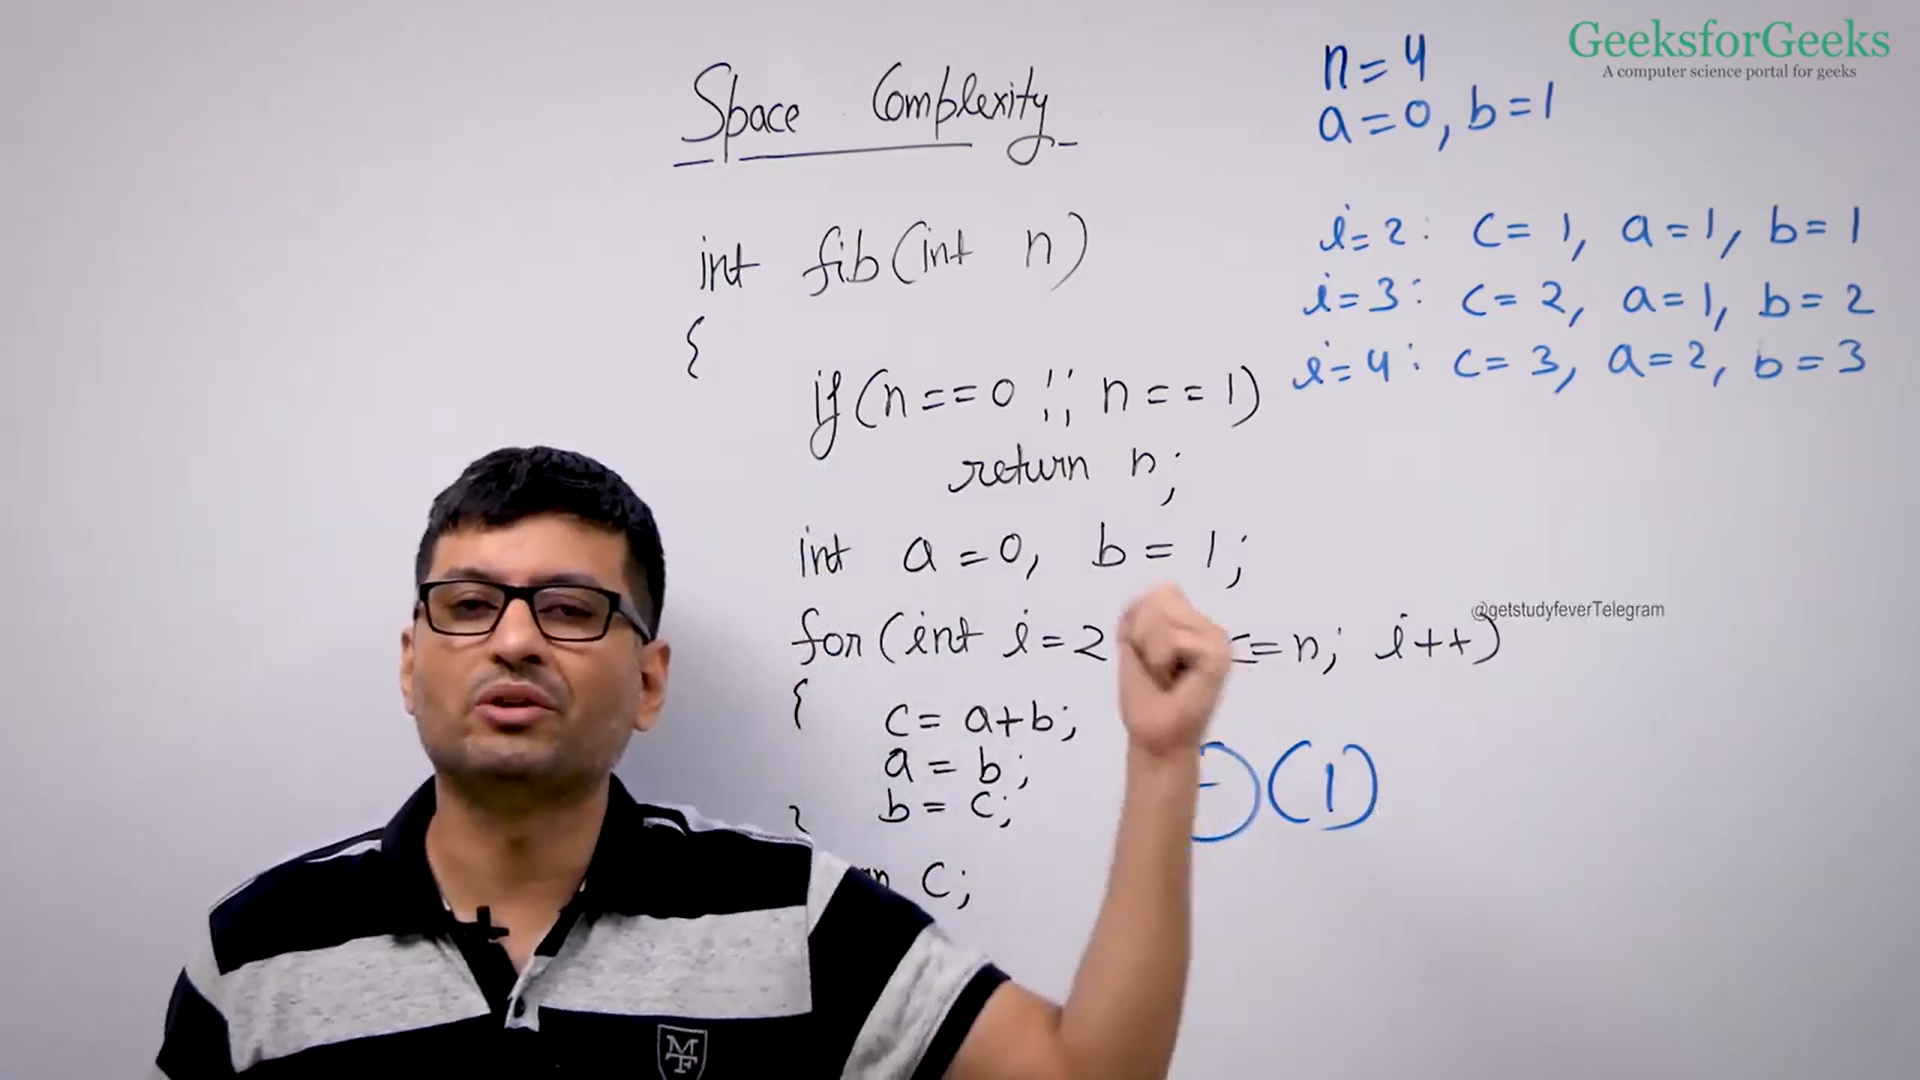 GeeksforGeeks
A computer science portal for geeks
Space Complexity
int fib(int n)
{
if(n==0 || n==1)
return n;
int a=0, b=1;
for(int i=2 <=n; i++)
{
c= a+b;
a = b;
b= c;
}
c;
n=4
a=0, b=1
i=2: c= 1, a=1, b=1
i=3: c= 2, a=1, b=2
i=4: c= 3, a=2, b=3
@getstudyfeverTelegram
Θ(1)
MF